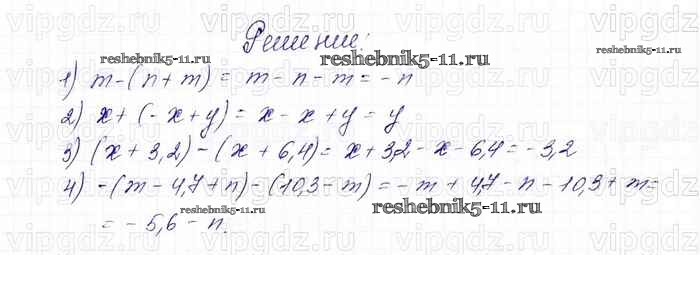 Решение:
reshebnik5-11.ru
reshebnik5-11.ru
reshebnik5-11.ru
1) m-(n+m) = m-n-m=-n
2) x+(-x+y)=x-x+y=y
3) (x+3,2)-(x+6,4)=x+3,2-x-6,4=-3,2
4) -(m-4,7+n)-(10,3-m)=-m+4,7-n-10,3+m=
=-5,6-n.
reshebnik5-11.ru
reshebnik5-11.ru
vipgdz.ru vipgdz.ru vipgdz.ru vipgdz.ru